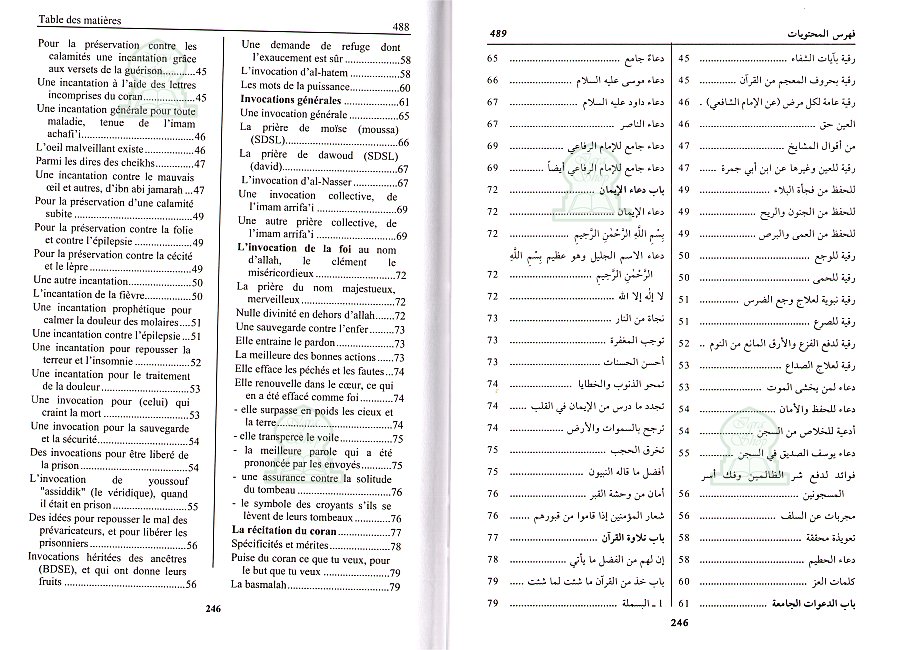 Table des matières
488
Pour la préservation contre les
calamités une incantation grâce
aux versets de la guérison............45
Une incantation à l'aide des lettres
incomprises du coran....................45
Une incantation générale pour toute
maladie, tenue de l'imam
achafi'i..........................................46
L'oeil malveillant existe ................46
Parmi les dires des cheikhs............47
Une incantation contre le mauvais
œil et autres, d'ibn abi jamarah ...47
Pour la préservation d'une calamité
subite ............................................49
Pour la préservation contre la folie
et contre l'épilepsie ......................49
Pour la préservation contre la cécité
et le lèpre.......................................49
Une autre incantation.....................50
L'incantation de la fièvre...............50
Une incantation prophétique pour
calmer la douleur des molaires....51
Une incantation contre l'épilepsie ...51
Une incantation pour repousser la
terreur et l'insomnie .....................52
Une incantation pour le traitement
de la douleur .................................53
Une invocation pour (celui) qui
craint la mort ................................53
Une invocation pour la sauvegarde
et la sécurité..................................54
Des invocations pour être libéré de
la prison ........................................54
L'invocation de youssouf
"assiddik" (le véridique), quand
il était en prison ............................55
Des idées pour repousser le mal des
prévaricateurs, et pour libérer les
prisonniers ....................................56
Invocations héritées des ancêtres
(BDSE), et qui ont donne leurs
fruits .............................................56
Une demande de refuge dont
l'exaucement est sûr .....................58
L'invocation d'al-hatem .................58
Les mots de la puissance...............60
Invocations générales ..................61
Une invocation générale ................65
La prière de moïse (moussa)
(SDSL)..........................................66
La prière de dawoud (SDSL)
(david)...........................................67
L'invocation d'al-Nasser ................67
Une invocation collective, de
l'imam arrifa'i ...............................69
Une autre prière collective, de
l'imam arrifa'i ...............................69
L'invocation de la foi au nom
d'allah, le clément le
miséricordieux ..............................72
La prière du nom majestueux,
merveilleux ...................................72
Nulle divinité en dehors d'allah......72
Une sauvegarde contre l'enfer........73
Elle entraine le pardon...................73
La meilleure des bonnes actions .....73
Elle efface les péchés et les fautes...74
Elle renouvelle dans le cœur, ce qui
en a été effacé comme foi............74
- elle surpasse en poids les cieux et
la terre...........................................74
- elle transperce le voile.................75
- la meilleure parole qui a été
prononcée par les envoyés...........75
- une assurance contre la solitude
du tombeau ...................................76
- le symbole des croyants s'ils se
lèvent de leurs tombeaux .............76
La récitation du coran..................77
Spécificités et mérites....................78
Puise du coran ce que tu veux, pour
le but que tu veux .........................79
La basmalah...................................79
246
489
فهرس المحتويات
رقية بآيات الشفاء ........................ 45
رقية بحروف المعجم من القرآن ........... 45
رقية عامة لكل مرض (عن الإمام الشافعي) . 46
العين حق ................................ 46
من أقوال المشايخ ........................ 47
رقية للعين وغيرها عن ابن أبي جمرة ...... 47
للحفظ من فجأة البلاء .................... 49
للحفظ من الجنون والريح ................. 49
للحفظ من العمى والبرص ................. 49
رقية للوجع .............................. 50
رقية للحمى ............................. 50
رقية نبوية لعلاج وجع الضرس ............ 51
رقية للصرع ............................. 51
رقية لدفع الفزع والأرق المانع من النوم .. 52
رقية لعلاج الصداع ...................... 53
دعاء لمن يخشى الموت ................... 53
دعاء للحفظ والأمان ..................... 54
أدعية للخلاص من السجن ................ 54
دعاء يوسف الصديق في السجن ............ 55
فوائد لدفع شر الظالمين وفك أسر
المسجونين .............................. 56
مجربات عن السلف ...................... 56
تعويذة محققة ........................... 58
دعاء الحطيم ............................ 58
كلمات العز ............................. 60
باب الدعوات الجامعة ................... 61
دعاءٌ جامع .............................. 65
دعاء موسى عليه السلام .................. 66
دعاء داود عليه السلام ................... 67
دعاء الناصر ............................. 67
دعاء جامع للإمام الرفاعي ................ 69
دعاء جامع للإمام الرفاعي أيضاً ........... 69
باب دعاء الإيمان ........................ 72
دعاء الإيمان ............................. 72
بِسْمِ اللَّهِ الرَّحْمٰنِ الرَّحِيمِ .................... 72
دعاء الاسم الجليل وهو عظيم بِسْمِ اللَّهِ
الرَّحْمٰنِ الرَّحِيمِ ........................... 72
لا إله إلا الله ............................ 72
نجاة من النار ............................ 73
توجب المغفرة ........................... 73
أحسن الحسنات .......................... 73
تمحو الذنوب والخطايا ................... 74
تجدد ما درس من الإيمان في القلب ....... 74
ترجح بالسموات والأرض ................. 74
تخرق الحجب ............................ 75
أفضل ما قاله النبيون ..................... 75
أمان من وحشة القبر ..................... 76
شعار المؤمنين إذا قاموا من قبورهم ....... 76
باب تلاوة القرآن ........................ 77
إن لهم من الفضل ما يأتي ................ 78
باب خذ من القرآن ما شئت لما شئت ..... 79
١ ـ البسملة .............................. 79
246